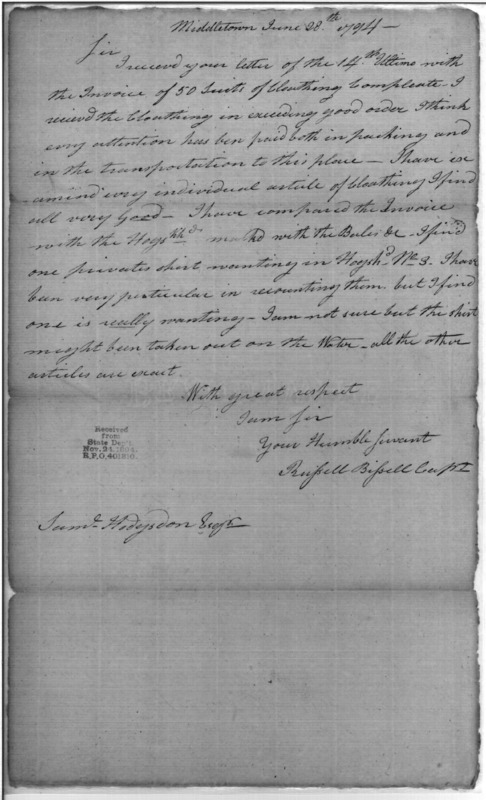 Middletown June 28th 1794 —
Sir
I receved your letter of the 14th Ultimo with
the Invoice of 50 Suits of Cloathing Compleate I
recievd the Cloathing in exceeding good order I think
evry attention has ben paid both in packing and
in the transportation to this place — I have ex
amiend evry individual article of Cloathing I find
all very Good — I have compared the Invoice
with the Hogshds markd with the Bales &c — I find
one privates shirt wanting in Hogshd No 3. I have
ben very perticular in recounting them, but I find
one is really wanting — I am not sure but the shirt
might been taken out on the Water — all the other
articles are exact
With great respect
I am Sir
Your Humble Servant
Russell Bissell Capt
Received
from
State Dep't
Nov. 24, 1894.
R.P.O. 401810.
Saml Hodgsdon Esqr